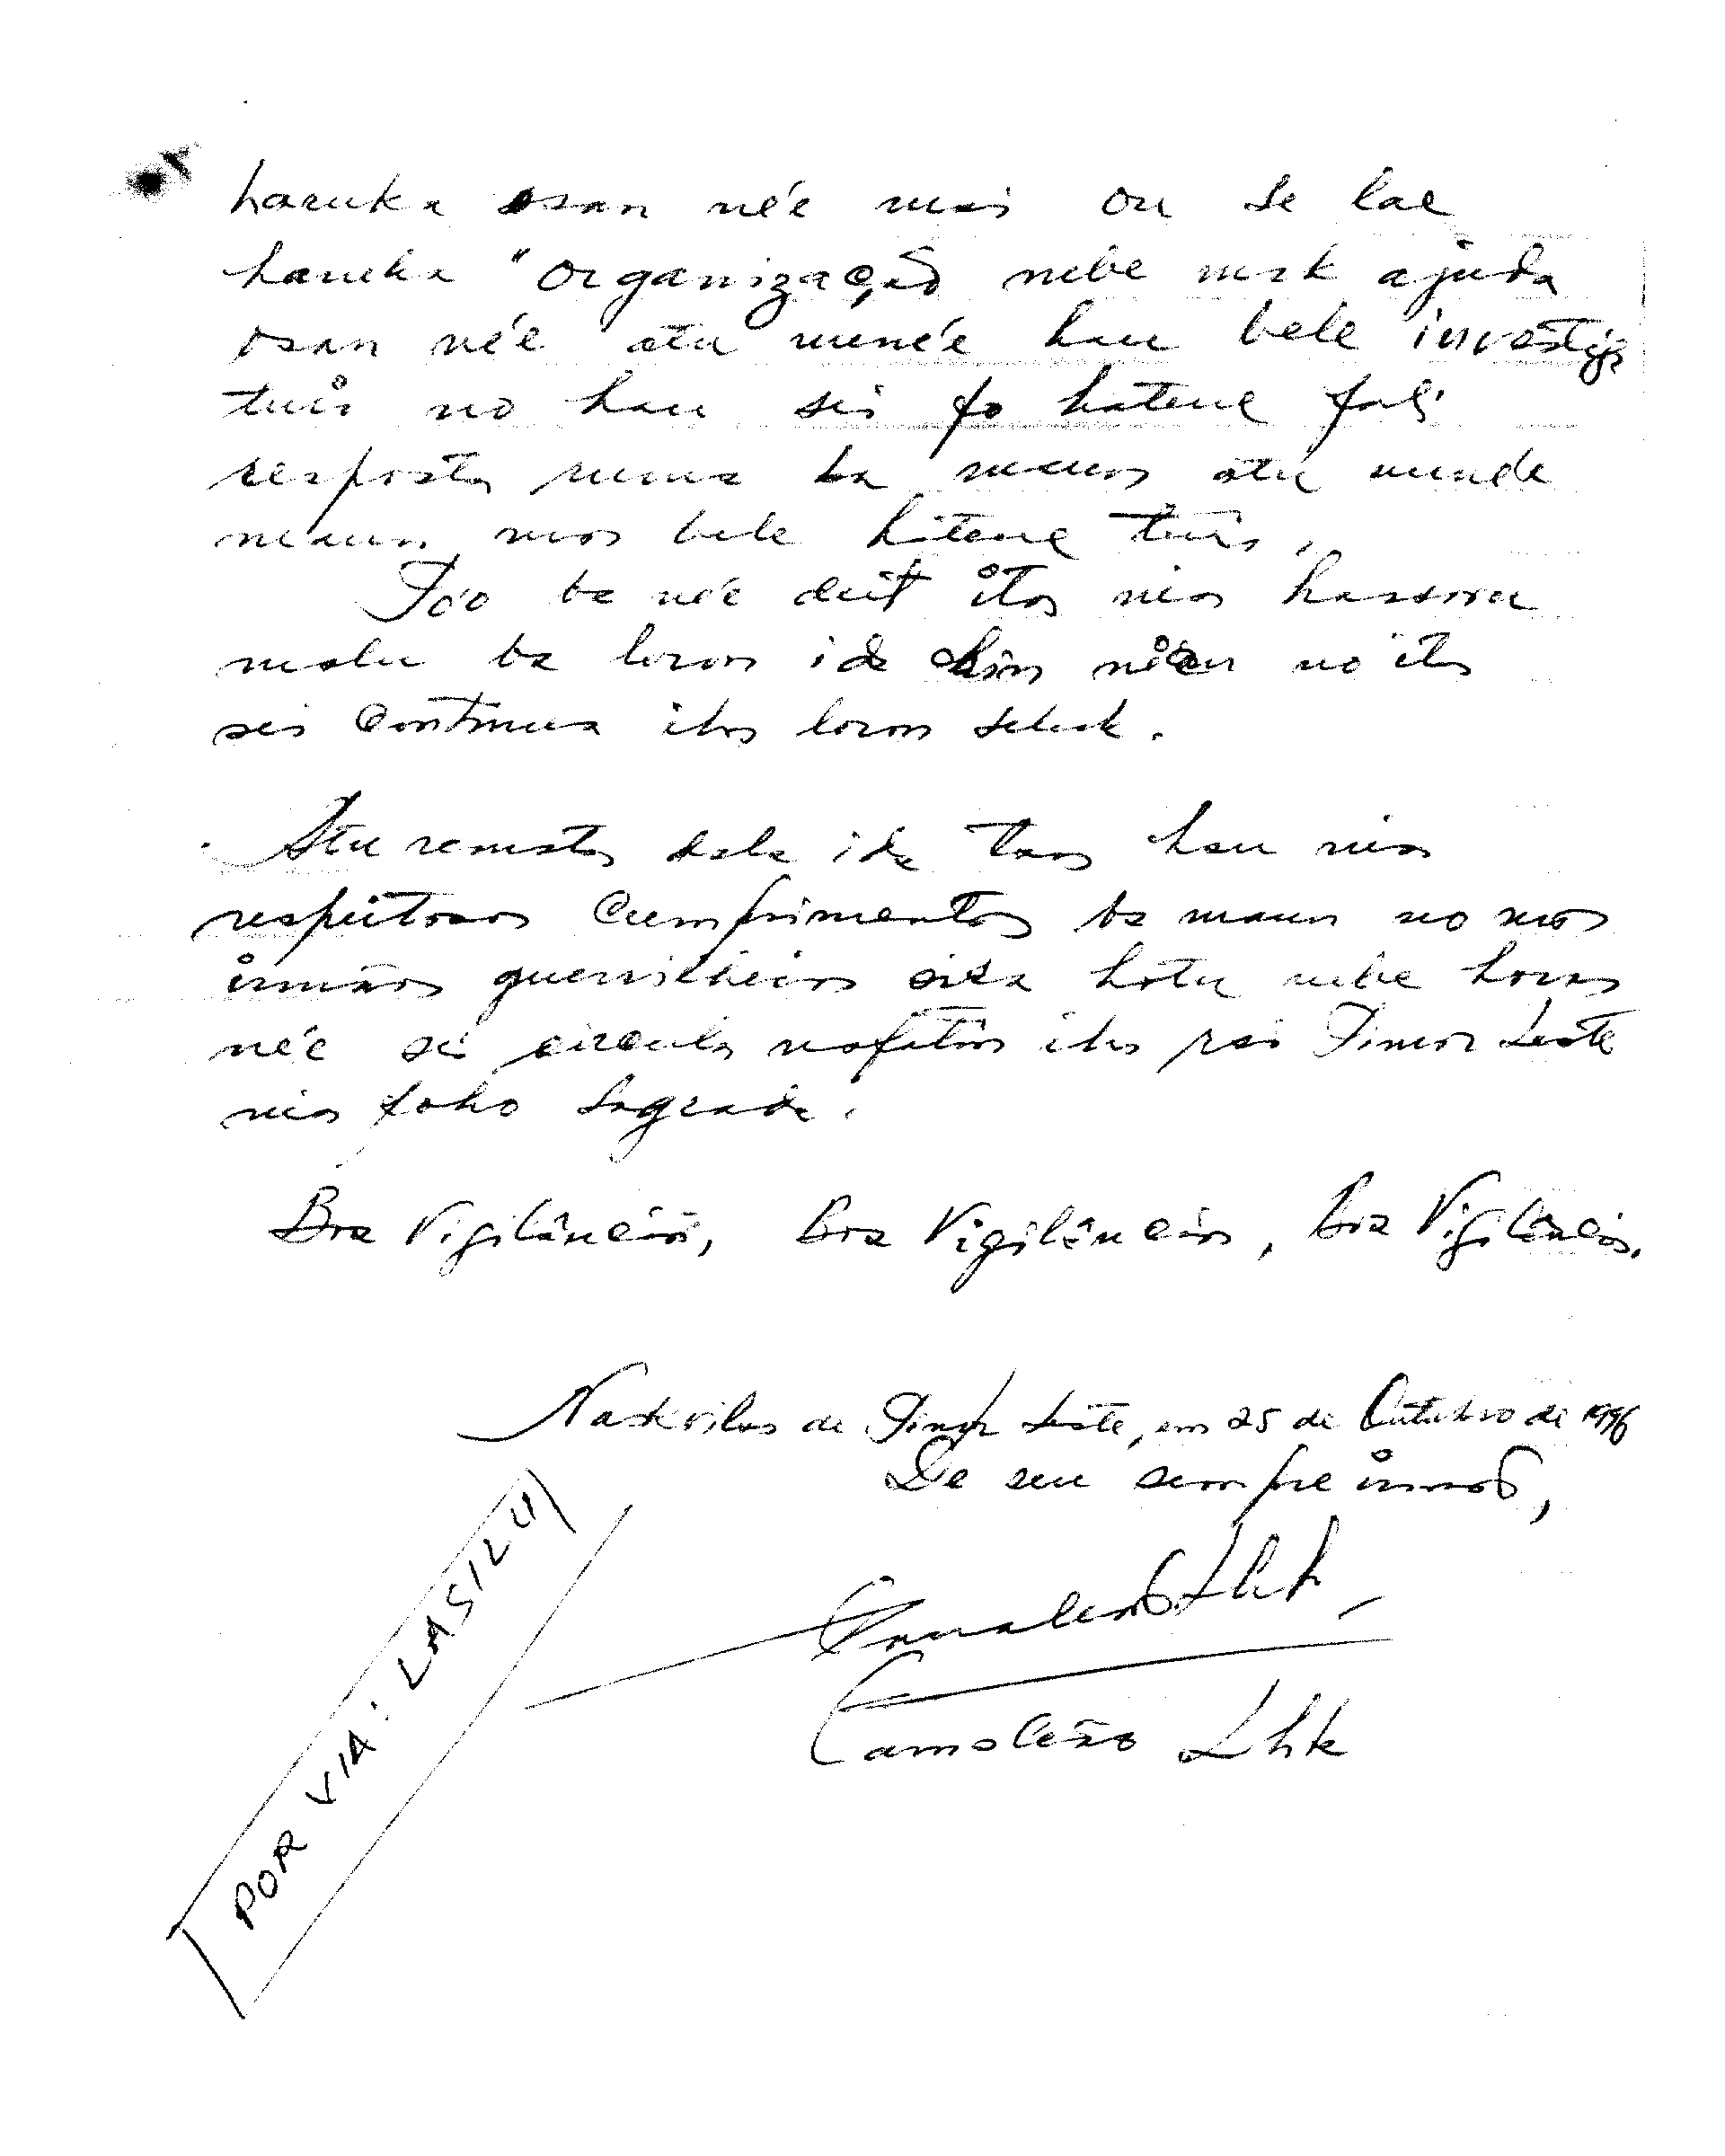 haruka osan né'e mai ou se lae
haruka "organização nebe mak ajuda
osan né'e atu nuné'e hau bele investiga
tuir no hau sei fó hatene fali
resposta ruma ba maun atu nunde
maun mos bele hatene tuir.
Tó'o ba né'e deit ita nia hassoru
malu ba loron ida ohin né'e no ita
sei continua iha loron seluk.
Atu remata dala ida tan hau nia
respeitosos cumprimentos ba maun no mos
irmãos guerrilheiros sira hotu nebe horas
né'e sei circula nafatin iha rai Timor Leste
nia foho sagrado.
Boa Vigilância, Boa Vigilância, Boa Vigilância.
de Timor Leste, em 25 de Outubro de 1996
De seu sempre irmão,
Camaleão Lhk
POR VIA: LASILU